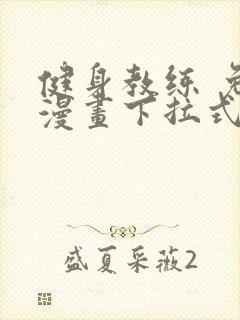 健身教练
漫畫下拉式
盛夏采薇2